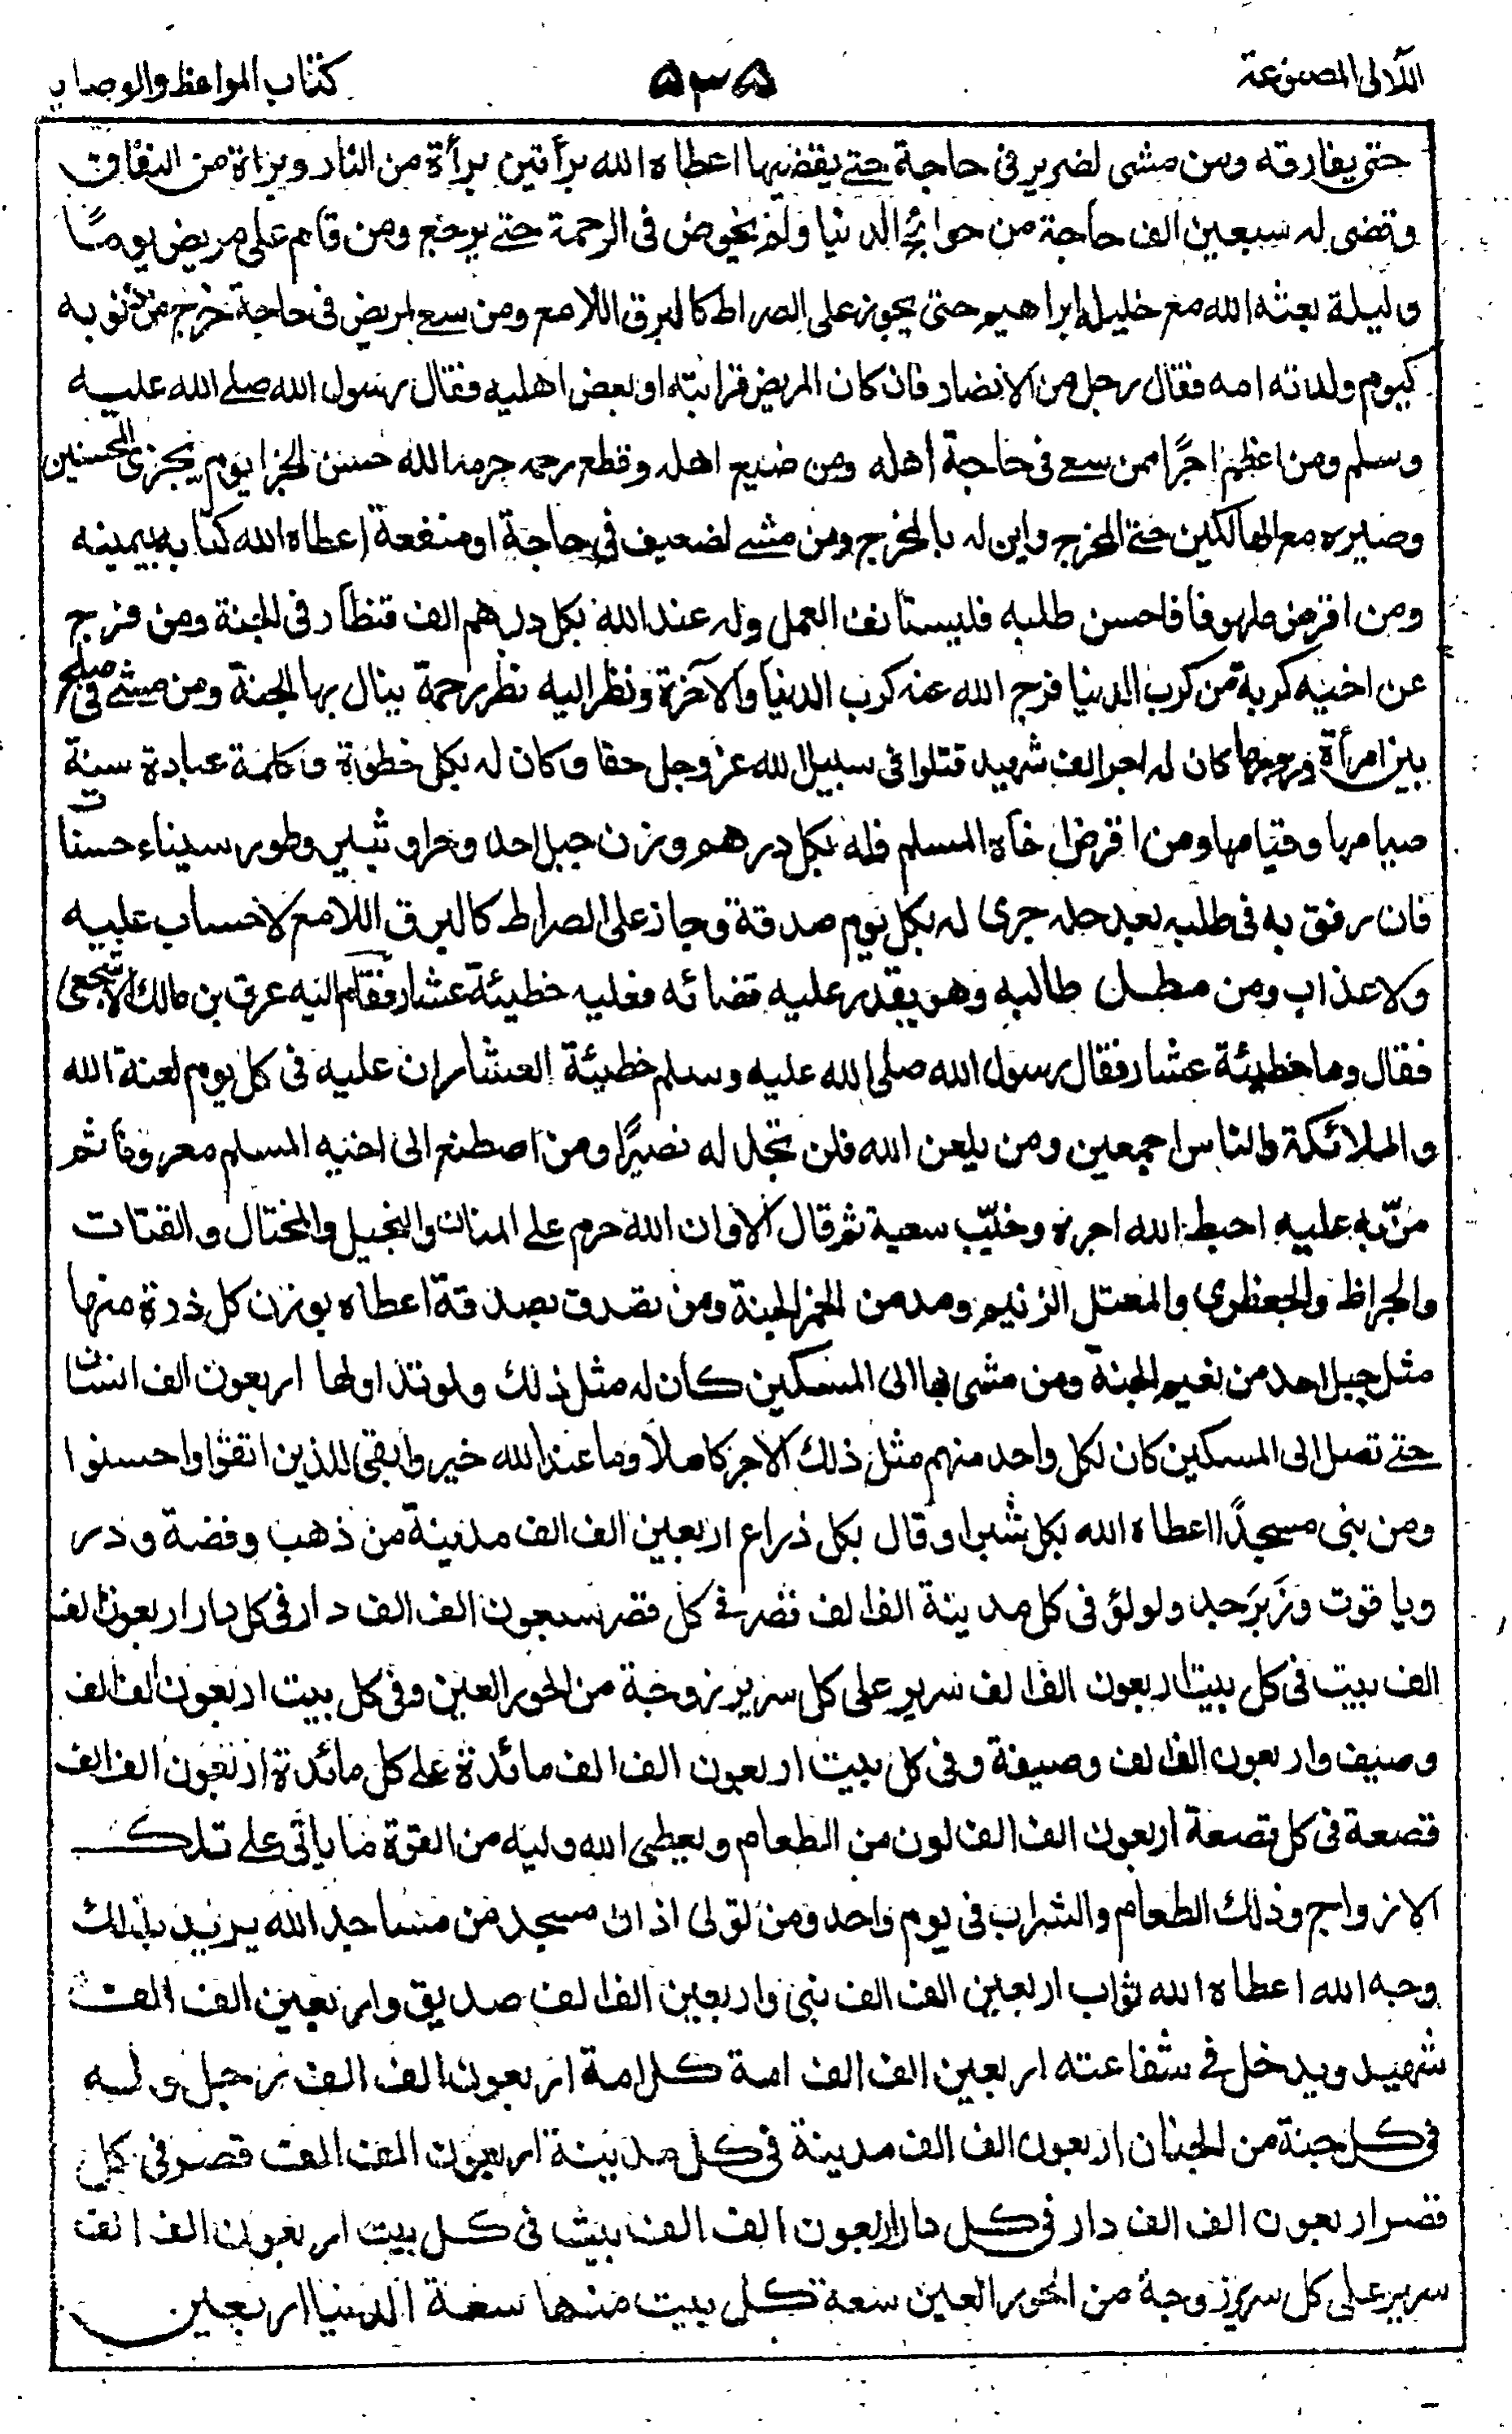 اللآلى المصنوعة ٥٣٥ كتاب المواعظ والوصايا
حتى يفارقه ومن مشى لضرير فى حاجة حتے يقضيها اعطاه الله برأتين برأة من النار وبراة من النفاق
وقضى له سبعين الف حاجة من حوائج الدنيا ولم يخوض فى الرحمة حتے يرجع ومن قام على مريض يومًا
وليلة بعثه الله مع خليله ابراهيم حتى يجوز على الصراط كالبرق اللامع ومن سعى لمريض فى حاجة خرج من ذنوبه
كيوم ولدته امه فقال رجل من الانصار فان كان المريض قرابته او بعض اهليه فقال رسول الله صلے الله عليه
وسلم ومن اعظم اجرًا ممن سعى فى حاجة اهله ومن ضيع اهله وقطع رحمه حرمه الله حسن الجزا يوم يجزى المحسنين
وصيره مع الهالكين حتے المخرج واين له بالمخرج ومن مشے لضعيف فى حاجة او منفعة اعطاه الله كتابه بيمينه
ومن اقرض ملهوفا فاحسن طلبه فليستانف العمل وله عند الله بكل درهم الف قنطار فى الجنة ومن فرج
عن اخيه كربة من كرب الدنيا فرج الله عنه كرب الدنيا والآخرة ونظر اليه نظر رحمة ينال بها الجنة ومن مشے فى صلح
بين امرأة وزوجها كان له اجر الف شهيد قتلوا فى سبيل الله عز وجل حقا وكان له بكل خطوة وكلمة عبادة سنة
صيامها وقيامها ومن اقرض اخاه المسلم فله بكل درهم وزن جبل احد وحرا وثبير وطور سيناء حسنات
فان رفق به فى طلبه بعد حله جرى له بكل يوم صدقة وجاز على الصراط كالبرق اللامع لا حساب عليه
ولا عذاب ومن مطل طالبه وهو يقدر على قضائه فعليه خطيئة عشار فقام اليه عوف بن مالك الاشجعى
فقال وما خطيئة عشار فقال رسول الله صلى الله عليه وسلم خطيئة العشار ان عليه فى كل يوم لعنة الله
والملائكة والناس اجمعين ومن يلعن الله فلن تجد له نصيرًا ومن اصطنع الى اخيه المسلم معروفا ثم
منّ به عليه احبط الله اجره وخيّب سعيه ثم قال الا وان الله حرم على المنان والبخيل والمختال والقتات
والجواظ والجعظرى والعتل الزنيم ومدمن الخمر الجنة ومن تصدق بصدقة اعطاه بوزن كل ذرة منها
مثل جبل احد من نعيم الجنة ومن مشى بها الى المسكين كان له مثل ذلك ولو تداولها اربعون الف انسان
حتے تصل الى المسكين كان لكل واحد منهم مثل ذلك الاجر كاملا وما عند الله خير وابقى للذين اتقوا واحسنوا
ومن بنى مسجدًا اعطاه الله بكل شبر او قال بكل ذراع اربعين الف الف مدينة من ذهب وفضة ودر
وياقوت وزبرجد ولولؤ فى كل مدينة الف الف قصر فے كل قصر سبعون الف الف دار فى كل دار اربعون الف
الف بيت فى كل بيت اربعون الف الف سرير على كل سرير زوجة من الحور العين وفى كل بيت اربعون الف الف
وصيف واربعون الف الف وصيفة وفى كل بيت اربعون الف الف مائدة على كل مائدة اربعون الف الف
قصعة فى كل قصعة اربعون الف الف لون من الطعام ويعطى الله وليه من القوة ما ياتى على تلك
الازواج وذلك الطعام والشراب فى يوم واحد ومن تولى اذان مسجد من مساجد الله يريد بذلك
وجه الله اعطاه الله ثواب اربعين الف الف نبى واربعين الف الف صديق واربعين الف الف
شهيد ويدخل فے شفاعته اربعين الف الف امة كل امة اربعون الف الف رجل وله
فى كل جنة من الجنان اربعون الف الف مدينة فى كل مدينة اربعون الف الف قصر فى كل
قصر اربعون الف الف دار فى كل دار اربعون الف الف بيت فى كل بيت اربعون الف الف
سرير على كل سرير زوجة من الحور العين سعة كل بيت منها سعة الدنيا اربعين